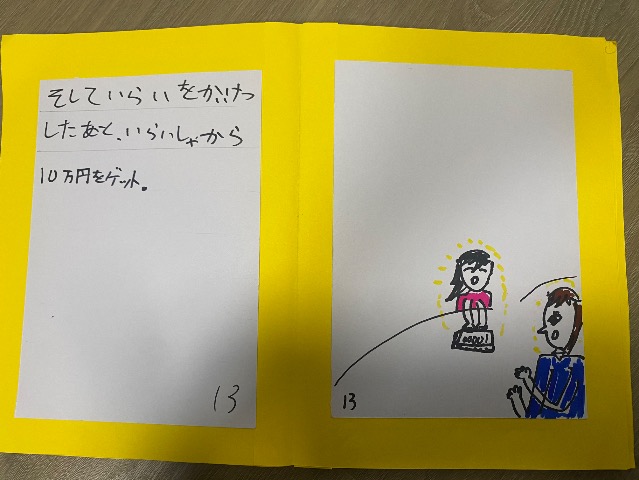 そしていらいをかいけつ
したあと、いらいしゃから
10万円をゲット。
13
13